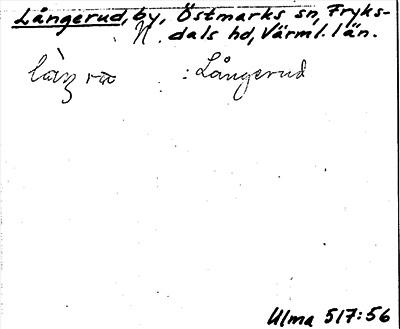 Långerud, by, Östmarks sn, Fryks-
N. dals hd, Värml. län.
: Långerud
Ulma 517:56